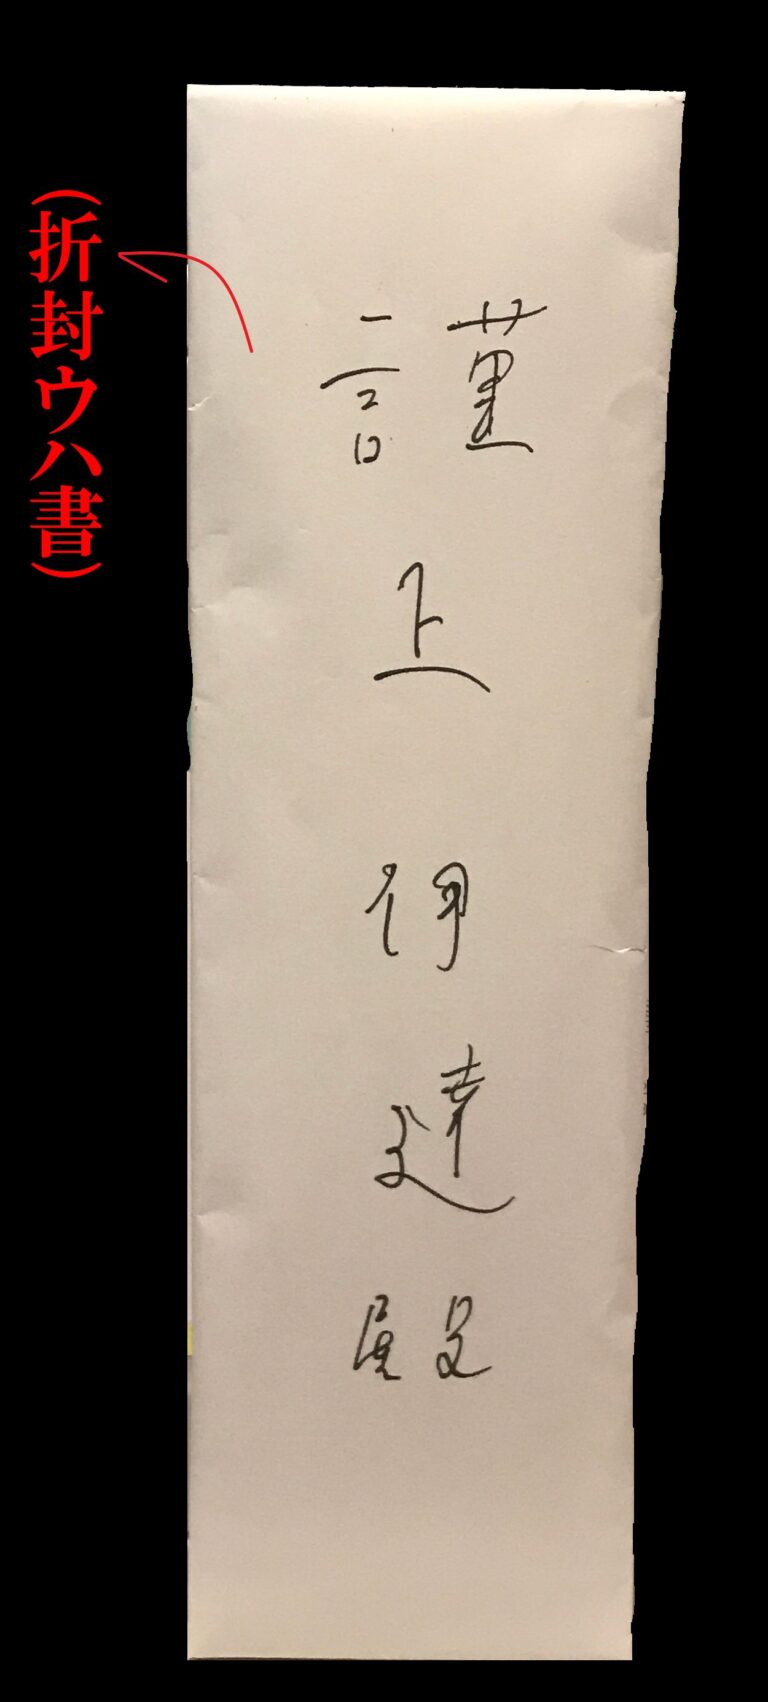 謹上伊達殿
(折封ウハ書)